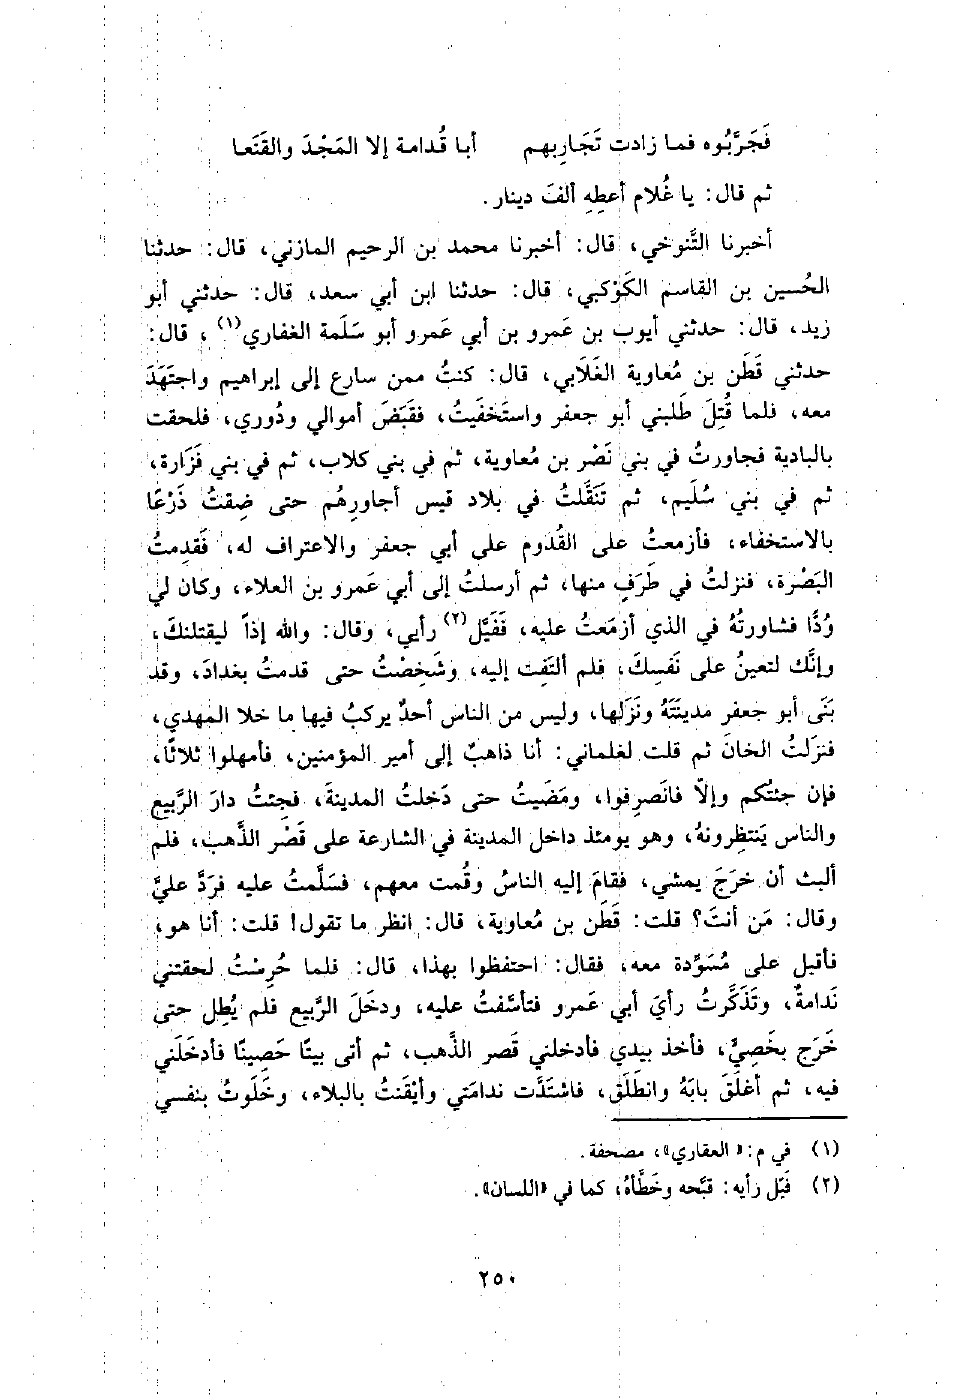 فَجَرَّبُوه فما زادت تَجَارِبهم أبا قُدامة إلا المَجْدَ والقَنَعا
ثم قال: يا غُلام أعطِهِ ألفَ دينار.
أخبرنا التَّنوخي، قال: أخبرنا محمد بن الرحيم المازني، قال: حدثنا
الحُسين بن القاسم الكَوْكبي، قال: حدثنا ابن أبي سعد، قال: حدثني أبو
زيد، قال: حدثني أيوب بن عَمرو بن أبي عَمرو أبو سَلَمة الغفاري(١)، قال:
حدثني قَطَن بن مُعاوية الغَلَابي، قال: كنتُ ممن سارع إلى إبراهيم واجتَهَدَ
معه، فلما قُتِلَ طَلبني أبو جعفر واستَخفَيتُ، فقَبَضَ أموالي ودُوري، فلحقت
بالبادية فجاورتُ في بني نَصْر بن مُعاوية، ثم في بني كلاب، ثم في بني فَزَارة،
ثم في بني سُلَيم، ثم تَنَقَّلتُ في بلاد قيس أجاورِهُم حتى ضِقتُ ذَرْعًا
بالاستخفاء، فأزمعتُ على القُدوم على أبي جعفر والاعتراف له، فَقدِمتُ
البَصْرة، فنزلتُ في طَرَفٍ منها، ثم أرسلتُ إلى أبي عَمرو بن العلاء، وكان لي
وُدًّا فشاورتهُ في الذي أزمَعتُ عليه، فَفَيَّل(٢) رأيي، وقال: والله إذاً ليقتلنكَ،
وإنَّك لتعينُ على نَفسِكَ، فلم ألتَفِت إليه، وشَخِصْتُ حتى قدمتُ بغدادَ، وقد
بَنَى أبو جعفر مدينتَهُ ونَزَلها، وليس من الناس أحدٌ يركبُ فيها ما خلا المهدي،
فنزَلتُ الخانَ ثم قلت لغلماني: أنا ذاهبٌ إلى أمير المؤمنين، فأمهلوا ثلاثًا،
فإن جئتُكم وإلاّ فانَصرِفوا، ومَضَيتُ حتى دَخلتُ المدينةَ، فجئتُ دارَ الرَّبيع
والناس يَنتظِرونهُ، وهو يومئذ داخل المدينة في الشارعة على قَصْر الذَّهب، فلم
ألبث أن خرَجَ يمشي، فقامَ إليه الناسُ وقُمت معهم، فسَلَّمتُ عليه فرَدَّ عليَّ
وقال: مَن أنتَ؟ قلت: قَطَن بن مُعاوية، قال: انظر ما تقول! قلت: أنا هو،
فأقبل على مُسَوِّدة معه، فقال: احتفظوا بهذا، قال: فلما حُرِسْتُ لحقتني
نَدامةٌ، وتَذَكَّرتُ رأيَ أبي عَمرو فتأسَّفتُ عليه، ودخَلَ الرَّبيع فلم يُطِل حتى
خَرَج بخَصِيٍّ، فأخذ بيدي فأدخلني قَصر الذَّهب، ثم أتى بيتًا حَصِينًا فأدخَلَني
فيه، ثم أغلَقَ بابَهُ وانطَلَق، فاشتَدَّت ندامَتي وأيْقَنتُ بالبلاء، وخَلَوتُ بنفسي
(١) في م: «العقاري»، مصحفة.
(٢) فَيَّل رأيه: قبَّحه وخَطَّأهُ، كما في «اللسان».
٢٥٠